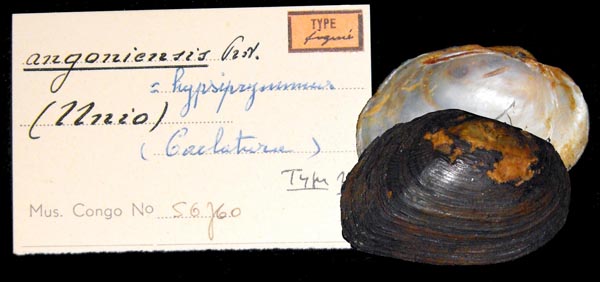 TYPE
figuré
angoniensis Prst.
= hypsiprymnus
(Unio)
( Caelatura )
Type
Mus. Congo No 56760